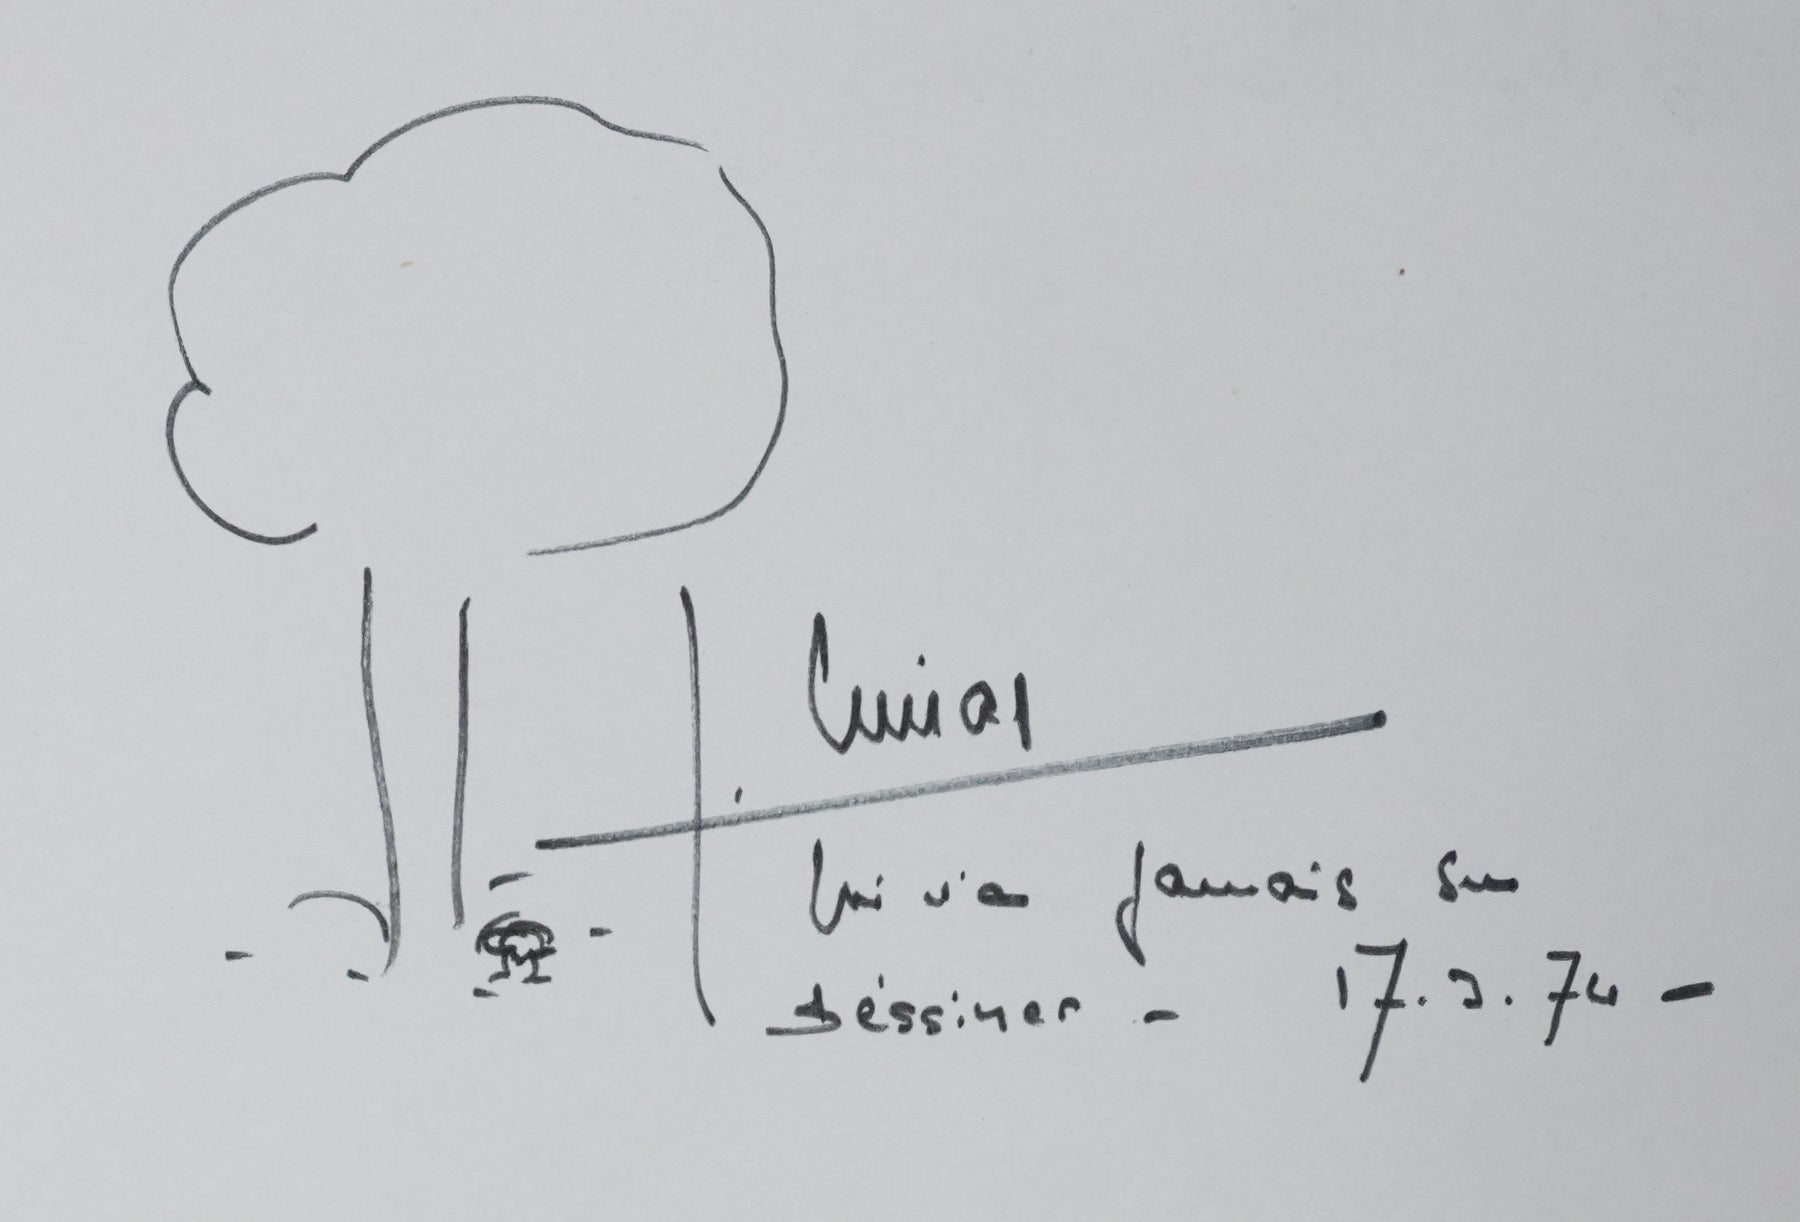 qui n'a jamais su
déssiner -
17.3.74 -